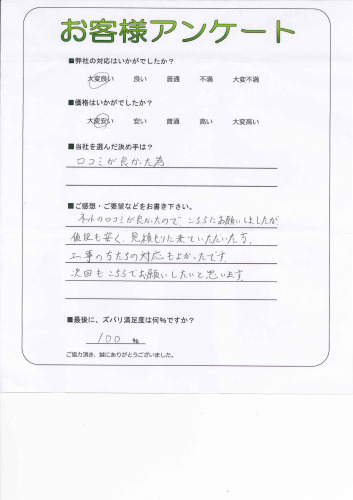 お客様アンケート
■弊社の対応はいかがでしたか？
大変良い 良い 普通 不満 大変不満
■価格はいかがでしたか？
大変安い 安い 普通 高い 大変高い
■当社を選んだ決め手は？
口コミが良かった為
■ご感想・ご要望などをお書き下さい。
ネットの口コミが良かったので、こちらにお願いしましたが
値段も安く、見積もりに来ていただいた方、
工事の方たちの対応もよかったです。
次回もこちらでお願いしたいと思います。
■最後に、ズバリ満足度は何％ですか？
100 %
ご協力頂き、誠にありがとうございました。